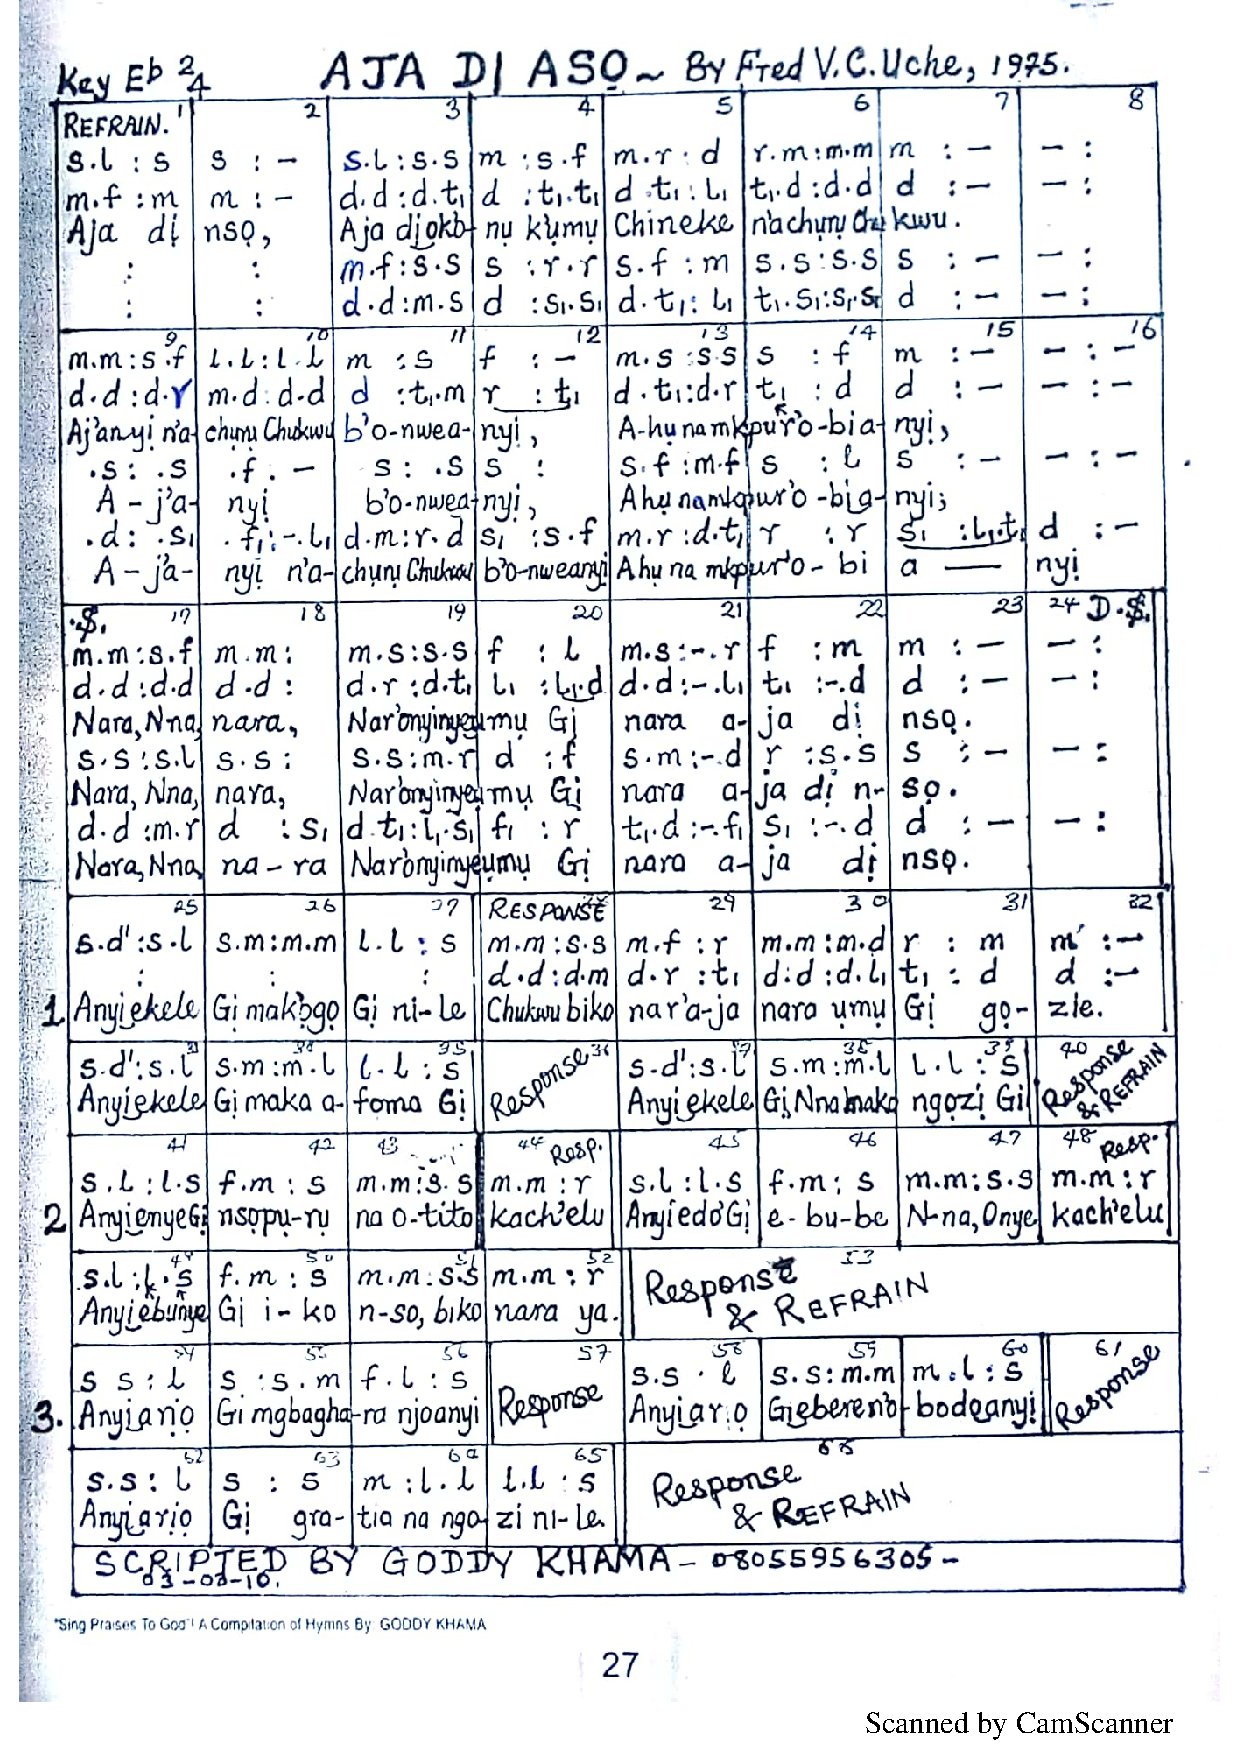 Key Eb 2/4 AJA DI ASO ~ By Fred V.C. Uche, 1975.
REFRAIN. 1 2 3 4 5 6 7 8
s.l : s | s : - | s.l : s.s | m : s.f | m.r : d | r.m : m.m | m : - | - :
m.f : m | m : - | d.d : d.t₁ | d : t₁.t₁ | d t₁ : l₁ | t₁.d : d.d | d : - | - :
Aja dị nsọ, Aja dị ọkb- nụ k'ụmụ Chineke n'achụnụ Chukwu.
: | : | m.f : s.s | s : r.r | s.f : m | s.s : s.s | s : - | - :
: | : | d.d : m.s | d : s₁.s₁ | d.t₁ : l₁ | t₁.s₁ : s₁.s₁ | d : - | - :
9 10 11 12 13 14 15 16
m.m : s.f | l.l : l.l | m : s | f : - | m.s : s.s | s : f | m : - | - : -
d.d : d.r | m.d : d.d | d : t₁.m | r : t₁ | d.t₁ : d.r | t₁ : d | d : - | - : -
Aj'anyị n'a- chụnụ Chukwu b'o-nwea- nyị, A-hụ na mkpụr'o-bia- nyị,
.s : .s | .f . - | s : .s | s : | s.f : m.f | s : l | s : - | - : -
A - j'a- nyị b'o-nweạ- nyị, Ahụ na mkpụr'o -bia- nyị;
.d : .s₁ | .f₁ : -.l₁ | d.m : r.d | s₁ : s.f | m.r : d.t₁ | r : r | s₁ : l₁.t₁ | d : -
A - j'a- nyị n'a- chụnụ Chukwu b'o-nweanyị Ahụ na mkpụr'o - bi a — nyị
.S. 17 18 19 20 21 22 23 24 D.S.
m.m : s.f | m.m : | m.s : s.s | f : l | m.s : -.r | f : m | m : - | - :
d.d : d.d | d.d : | d.r : d.t₁ | l₁ : l₁.d | d.d : -.l₁ | t₁ : -.d | d : - | - :
Nara, Nna, nara, Nar'onyinyeụmụ Gị nara a- ja dị nsọ.
s.s : s.l | s.s : | s.s : m.r | d : f | s.m : -d | r : s.s | s : - | - :
Nara, Nna, nara, Nar'onyinyeụmụ Gị nara a- ja dị n- sọ.
d.d : m.r | d : s₁ | d t₁ : l₁.s₁ | f₁ : r | t₁.d : -.f₁ | s₁ : -.d | d : - | - :
Nara, Nna, na - ra Nar'onyinyeụmụ Gị nara a- ja dị nsọ.
25 26 27 RESPONSE 29 30 31 32
s.d' : s.l | s.m : m.m | l.l : s | m.m : s.s | m.f : r | m.m : m.d | r : m | m : -
: | : | : | d.d : d.m | d.r : t₁ | d.d : d.l₁ | t₁ : d | d : -
1. Anyịekele Gị mak'ọgọ Gị ni-le Chukwu biko nar'a-ja nara ụmụ Gị gọ- zie.
33 34 35 Response 36 37 38 39 40
s.d' : s.l | s.m : m.l | l.l : s | s.d' : s.l | s.m : m.l | l.l : s | Response & REFRAIN
Anyịekele Gị maka a- foma Gị Anyịekele Gị, Nna maka ngọzị Gị
41 42 43 44 Resp. 45 46 47 48 Resp.
s.l : l.s | f.m : s | m.m : s.s | m.m : r | s.l : l.s | f.m : s | m.m : s.s | m.m : r
2 Anyịenye Gị nsọpụ-rụ na o-tito kach'elu Anyịedo Gị e-bu-be N-na, Onye kach'elu
49 50 51 52 53
s.l : l.s | f.m : s | m.m : s.s | m.m : r | Response & REFRAIN
Anyịebunye Gị i-ko n-so, biko nara ya.
54 55 56 57 58 59 60 61
s s : l | s : s.m | f.l : s | Response | s.s . l | s.s : m.m | m.l : s | Response
3. Anyịarịọ Gị mgbagha-ra njọanyị Anyịarịọ Gịebereno- bodoanyị
62 63 64 65
s.s : l | s : s | m : l.l | l.l : s | Response & REFRAIN
Anyịarịọ Gị gra- tia na ngọ- zi ni-le.
SCRIPTED BY GODDY KHAMA - 08055956305 -
"Sing Praises To God"! A Compilation of Hymns By: GODDY KHAMA
27
Scanned by CamScanner